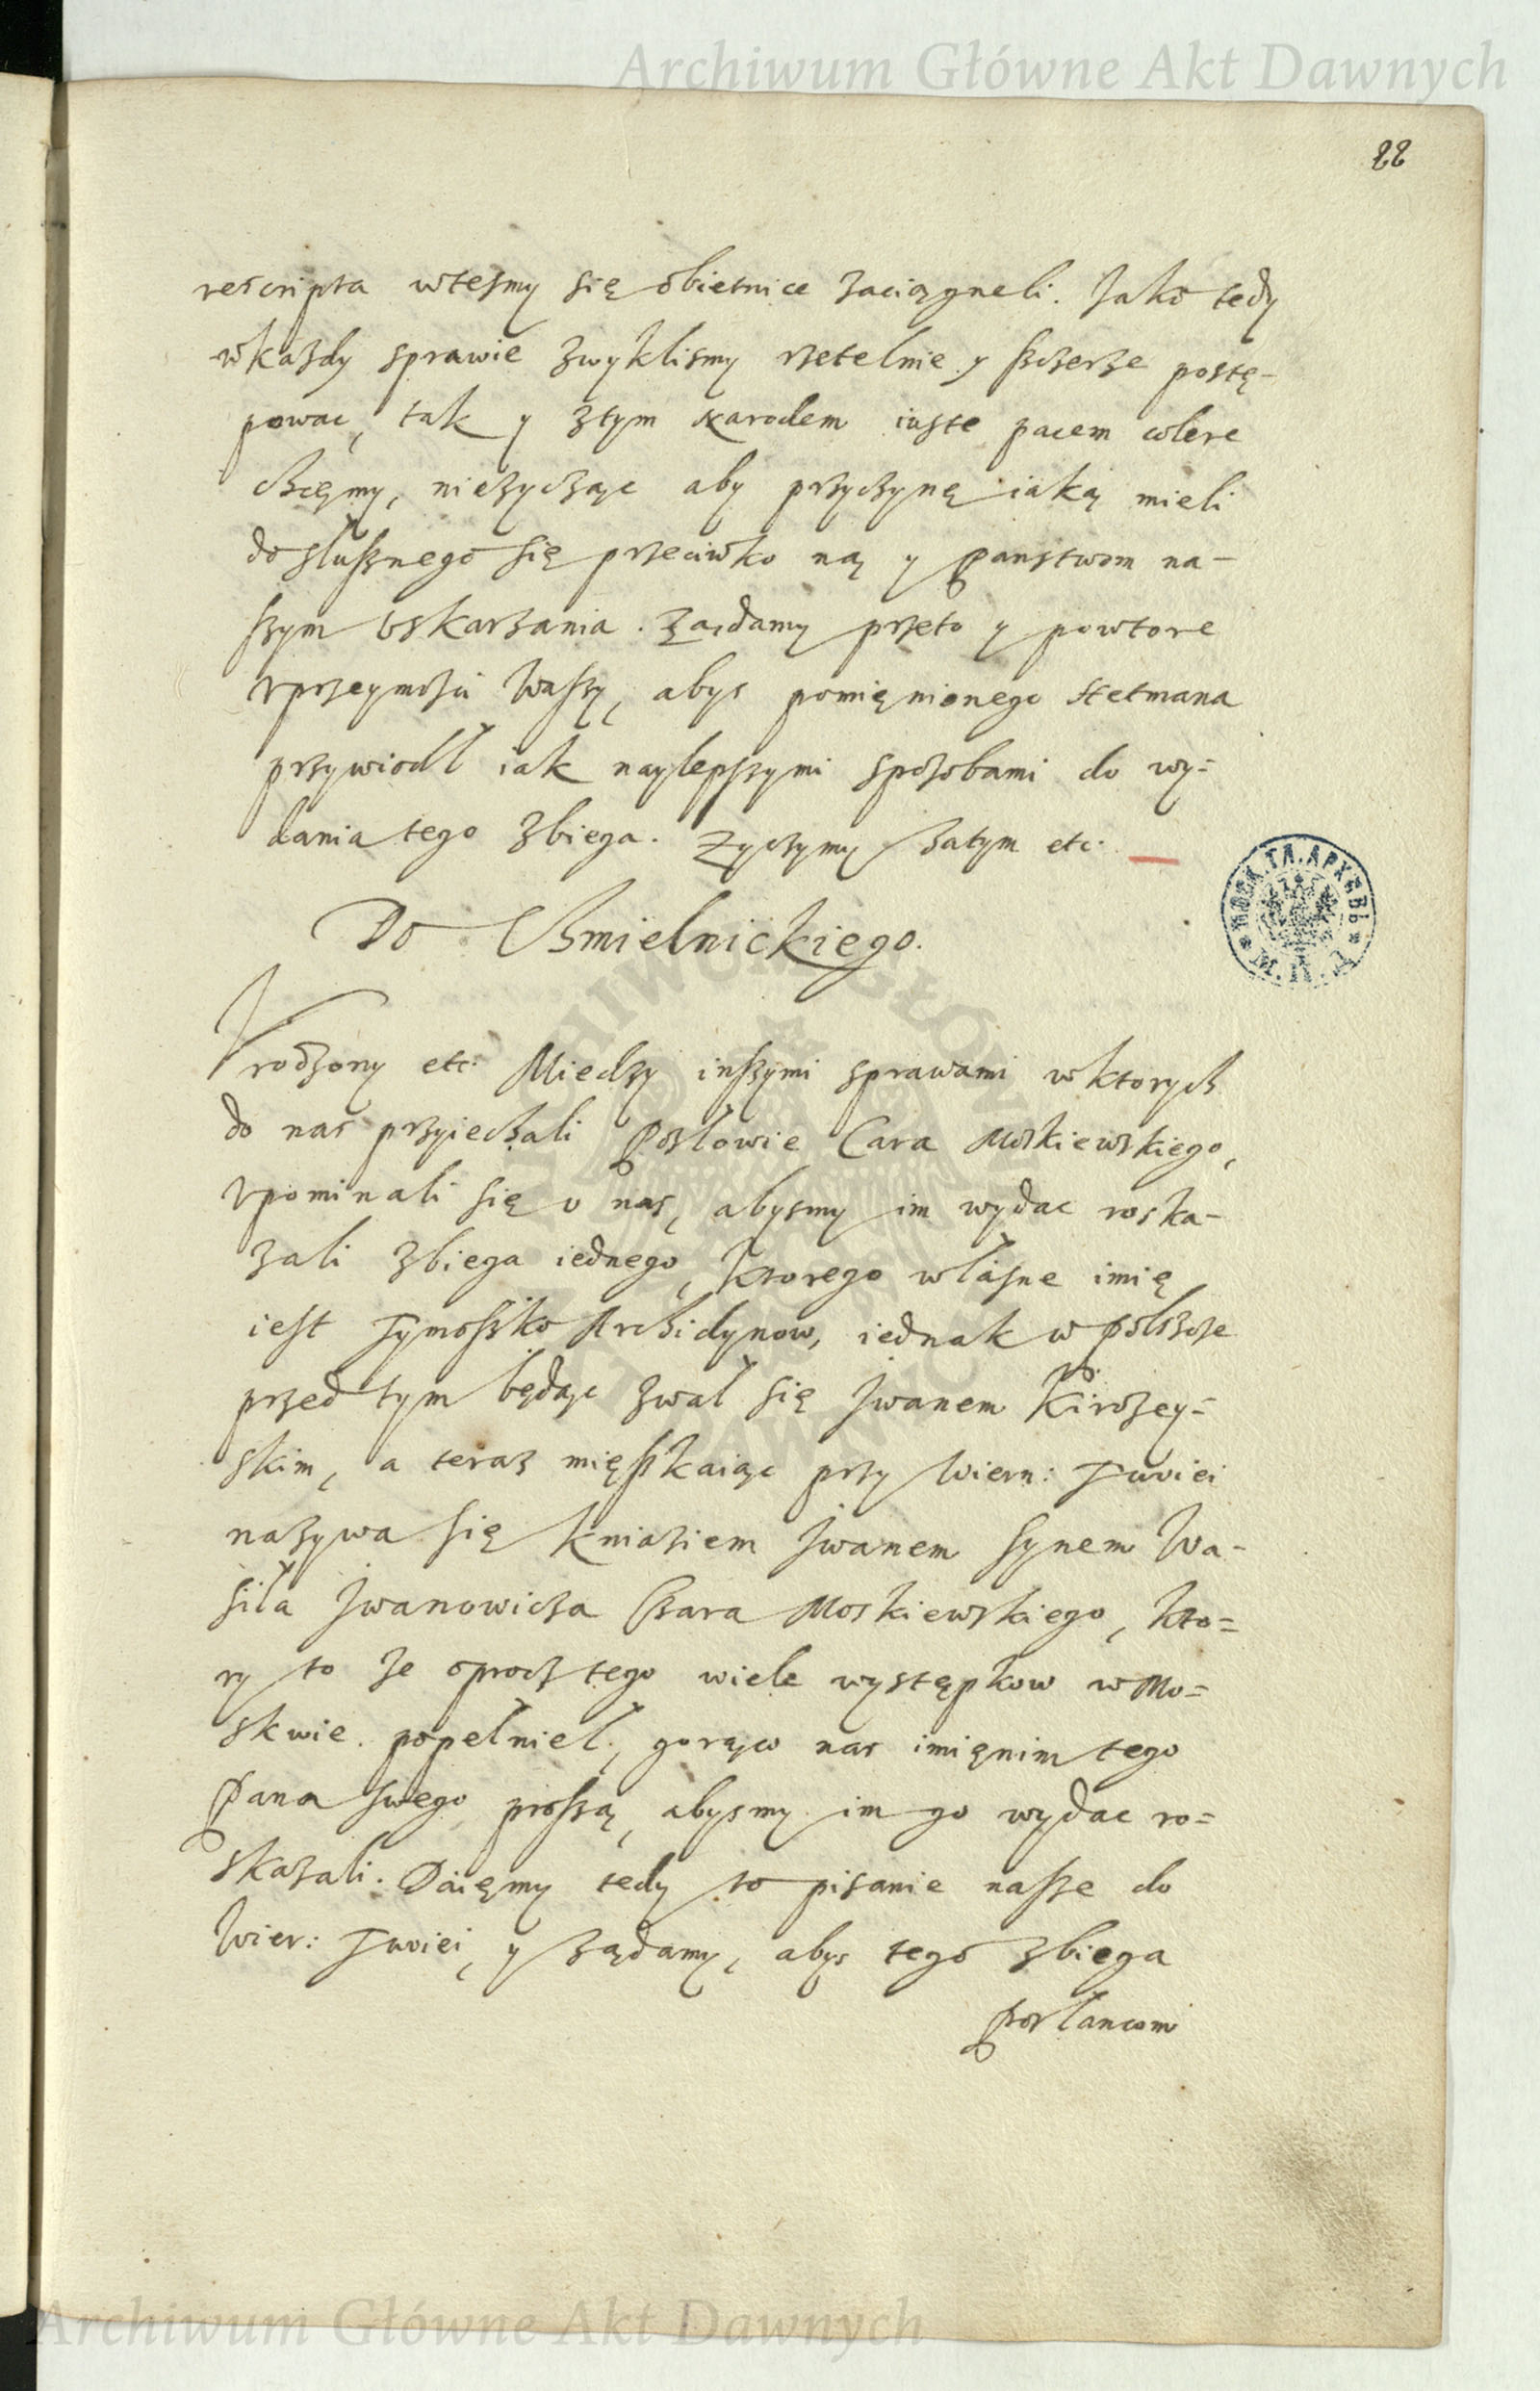 Archiwum Główne Akt Dawnych
22
rescripta wtesmy się obietnice zaciągneli. Jako tedy
w kazdy sprawie zwyklismy rzetelnie y szczerze postę-
powac, tak y ztym Narodem iuste pacem colere
chcęmy, niezycząc aby przyczynę iaką mieli
do słusznego się przeciwko nąm y Panstwom na-
szym Uskarzania. Ządamy przeto y powtore
Uprzeymosci Waszy, abys pomięnionego Hetmana
przywiodł iak naylepszymi sposobami do wy=
dania tego zbiega. Zyczymy zatym etc.
Do Chmielnickiego.
Vrodzony etc: Miedzy inszymi sprawami w ktorych
do nas przyiechali Posłowie Cara Moskiewskiego,
Upominali się u nas, abysmy im wydac roska-
zali zbiega iednego, ktorego własne imię
iest Tymoszko Archidynow, iednak w Polszcze
przed tym będąc zwał się Iwanem Kirczey=
skim, a teraz mięszkaiąc przy Wiern: Twoiei
nazywa się kniaziem Iwanem synem Wa-
sila Iwanowicza Czara Moskiewskiego, kto=
ry to ze oprocz tego wiele występkow w Mo=
skwie popełnieł, gorąco nas imięnim tego
Pana swego proszą, abysmy im go wydac ro=
skazali. Daięmy tedy to pisanie nasze do
Wier: Twoiei, y ządamy, abys tego zbiega
Posłancom
МОСК. ГЛ. АРХИВЪ
М. И. Д.
Archiwum Główne Akt Dawnych